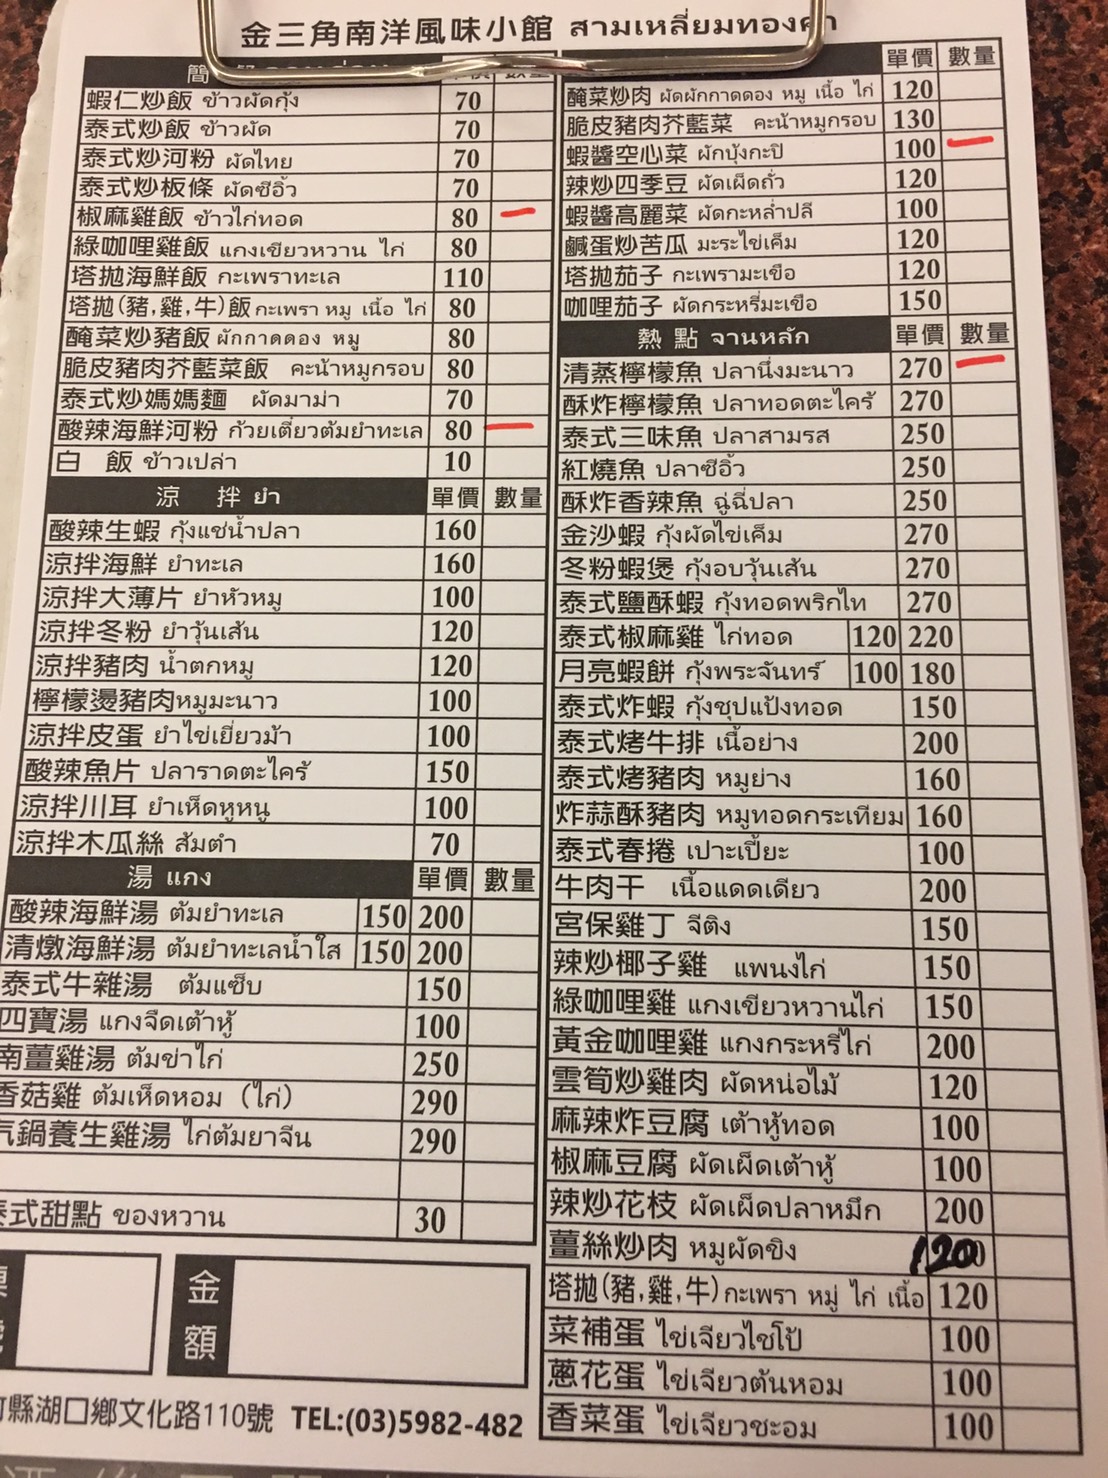 金三角南洋風味小館 สามเหลี่ยมทองคำ
簡
蝦仁炒飯 ข้าวผัดกุ้ง 70
泰式炒飯 ข้าวผัด 70
泰式炒河粉 ผัดไทย 70
泰式炒板條 ผัดซีอิ้ว 70
椒麻雞飯 ข้าวไก่ทอด 80
綠咖哩雞飯 แกงเขียวหวาน ไก่ 80
塔拋海鮮飯 กะเพราทะเล 110
塔拋(豬,雞,牛)飯 กะเพรา หมู เนื้อ ไก่ 80
醃菜炒豬飯 ผักกาดดอง หมู 80
脆皮豬肉芥藍菜飯 คะน้าหมูกรอบ 80
泰式炒媽媽麵 ผัดมาม่า 70
酸辣海鮮河粉 ก๋วยเตี่ยวต้มยำทะเล 80
白 飯 ข้าวเปล่า 10
涼 拌 ยำ 單價 數量
酸辣生蝦 กุ้งแช่น้ำปลา 160
涼拌海鮮 ยำทะเล 160
涼拌大薄片 ยำหัวหมู 100
涼拌冬粉 ยำวุ้นเส้น 120
涼拌豬肉 น้ำตกหมู 120
檸檬燙豬肉หมูมะนาว 100
涼拌皮蛋 ยำไข่เยี่ยวม้า 100
酸辣魚片 ปลาราดตะไคร้ 150
涼拌川耳 ยำเห็ดหูหนู 100
涼拌木瓜絲 ส้มตำ 70
湯 แกง 單價 數量
酸辣海鮮湯 ต้มยำทะเล 150 200
清燉海鮮湯 ต้มยำทะเลน้ำใส 150 200
泰式牛雜湯 ต้มแซ็บ 150
四寶湯 แกงจืดเต้าหู้ 100
南薑雞湯 ต้มข่าไก่ 250
香菇雞 ต้มเห็ดหอม (ไก่) 290
汽鍋養生雞湯 ไก่ต้มยาจีน 290
泰式甜點 ของหวาน 30
金額
縣湖口鄉文化路110號 TEL:(03)5982-482
單價 數量
醃菜炒肉 ผัดผักกาดดอง หมู เนื้อ ไก่ 120
脆皮豬肉芥藍菜 คะน้าหมูกรอบ 130
蝦醬空心菜 ผักบุ้งกะปิ 100
辣炒四季豆 ผัดเผ็ดถั่ว 120
蝦醬高麗菜 ผัดกะหล่ำปลี 100
鹹蛋炒苦瓜 มะระไข่เค็ม 120
塔拋茄子 กะเพรามะเขือ 120
咖哩茄子 ผัดกระหรี่มะเขือ 150
熱 點 จานหลัก 單價 數量
清蒸檸檬魚 ปลานึ่งมะนาว 270
酥炸檸檬魚 ปลาทอดตะไคร้ 270
泰式三味魚 ปลาสามรส 250
紅燒魚 ปลาซีอิ้ว 250
酥炸香辣魚 ฉู่ฉี่ปลา 250
金沙蝦 กุ้งผัดไข่เค็ม 270
冬粉蝦煲 กุ้งอบวุ้นเส้น 270
泰式鹽酥蝦 กุ้งทอดพริกไท 270
泰式椒麻雞 ไก่ทอด 120 220
月亮蝦餅 กุ้งพระจันทร์ 100 180
泰式炸蝦 กุ้งชุปแป้งทอด 150
泰式烤牛排 เนื้อย่าง 200
泰式烤豬肉 หมูย่าง 160
炸蒜酥豬肉 หมูทอดกระเทียม 160
泰式春捲 เปาะเปี้ยะ 100
牛肉干 เนื้อแดดเดียว 200
宮保雞丁 จีติง 150
辣炒椰子雞 แพนงไก่ 150
綠咖哩雞 แกงเขียวหวานไก่ 150
黃金咖哩雞 แกงกระหรี่ไก่ 200
雲筍炒雞肉 ผัดหน่อไม้ 120
麻辣炸豆腐 เต้าหู้ทอด 100
椒麻豆腐 ผัดเผ็ดเต้าหู้ 100
辣炒花枝 ผัดเผ็ดปลาหมึก 200
薑絲炒肉 หมูผัดขิง 120
塔拋(豬,雞,牛) กะเพรา หมู่ ไก่ เนื้อ 120
菜補蛋 ไข่เจียวไชโป้ 100
蔥花蛋 ไข่เจียวต้นหอม 100
香菜蛋 ไข่เจียวชะอม 100